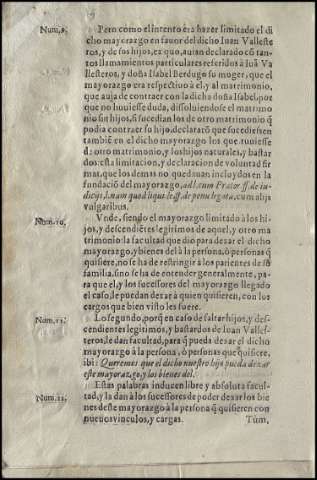 Num. 9.
Pero como el intento era hazer limitado el di
cho mayorazgo en fauor del dicho Iuan Vallest
eros, y de sus hijos, ex quo, auian declarado cõ tan-
tos llamamientos particulares referidos a Iuã Va
llesteros, y doña Isabel Berdugo su muger, que el
mayorazgo era respectiuo à el, y al matrimonio,
que auia de contraer con la dicha doña Isabel, por
que no huuiesse duda, dissoluiendose el matrimo
nio sin hijos, si sucedian los de otro matrimonio q̃
podia contraer su hijo, declararõ que sucediessen
tambiẽ en el dicho mayorazgo los que tuuiesse
de otro matrimonio, y los hijos naturales, y bastar
dos esta limitacion, y declaracion de voluntad fir
mat, que los demas no quedauan incluydos en la
fundaciõ del mayorazgo, ad l. cum Prætor ff. de iu-
dicijs, l. nam quod liquide ff. de penu legata, cum alijs
vulgaribus.
Num. 10.
Vnde, siendo el mayorazgo limitado à los hi-
jos, y descendiẽtes legitimos de aquel, y otro ma
trimonio: la facultad que diò para dexar el dicho
mayorazgo, y bienes del à la persona, ò personas q̃
quisiere, no se ha de restringir à los parientes de su
familia, sino se ha de entender generalmente, pa-
ra que el, y los sucessores del mayorazgo llegado
el caso, le puedan dexar à quien quisieren, con los
cargos que bien visto les fuere.
Num. 11.
Lo segundo, porq̃ en caso de faltar hijos, y des-
cendientes legitimos, y bastardos de Iuan Valles-
teros, le dan facultad, para q̃ pueda dexar el dicho
mayorazgo à la persona, ò personas que quisiere,
ibi: Queremos que el dicho nuestro hijo pueda dexar
este mayorazgo, y los bienes del.
Num. 12.
Estas palabras inducen libre y absoluta facul-
tad, y la dan à los sucessores de poder dexar los bie
nes deste mayorazgo à la persona q̃ quisieren con
nueuos vinculos, y cargas.
Tùm,